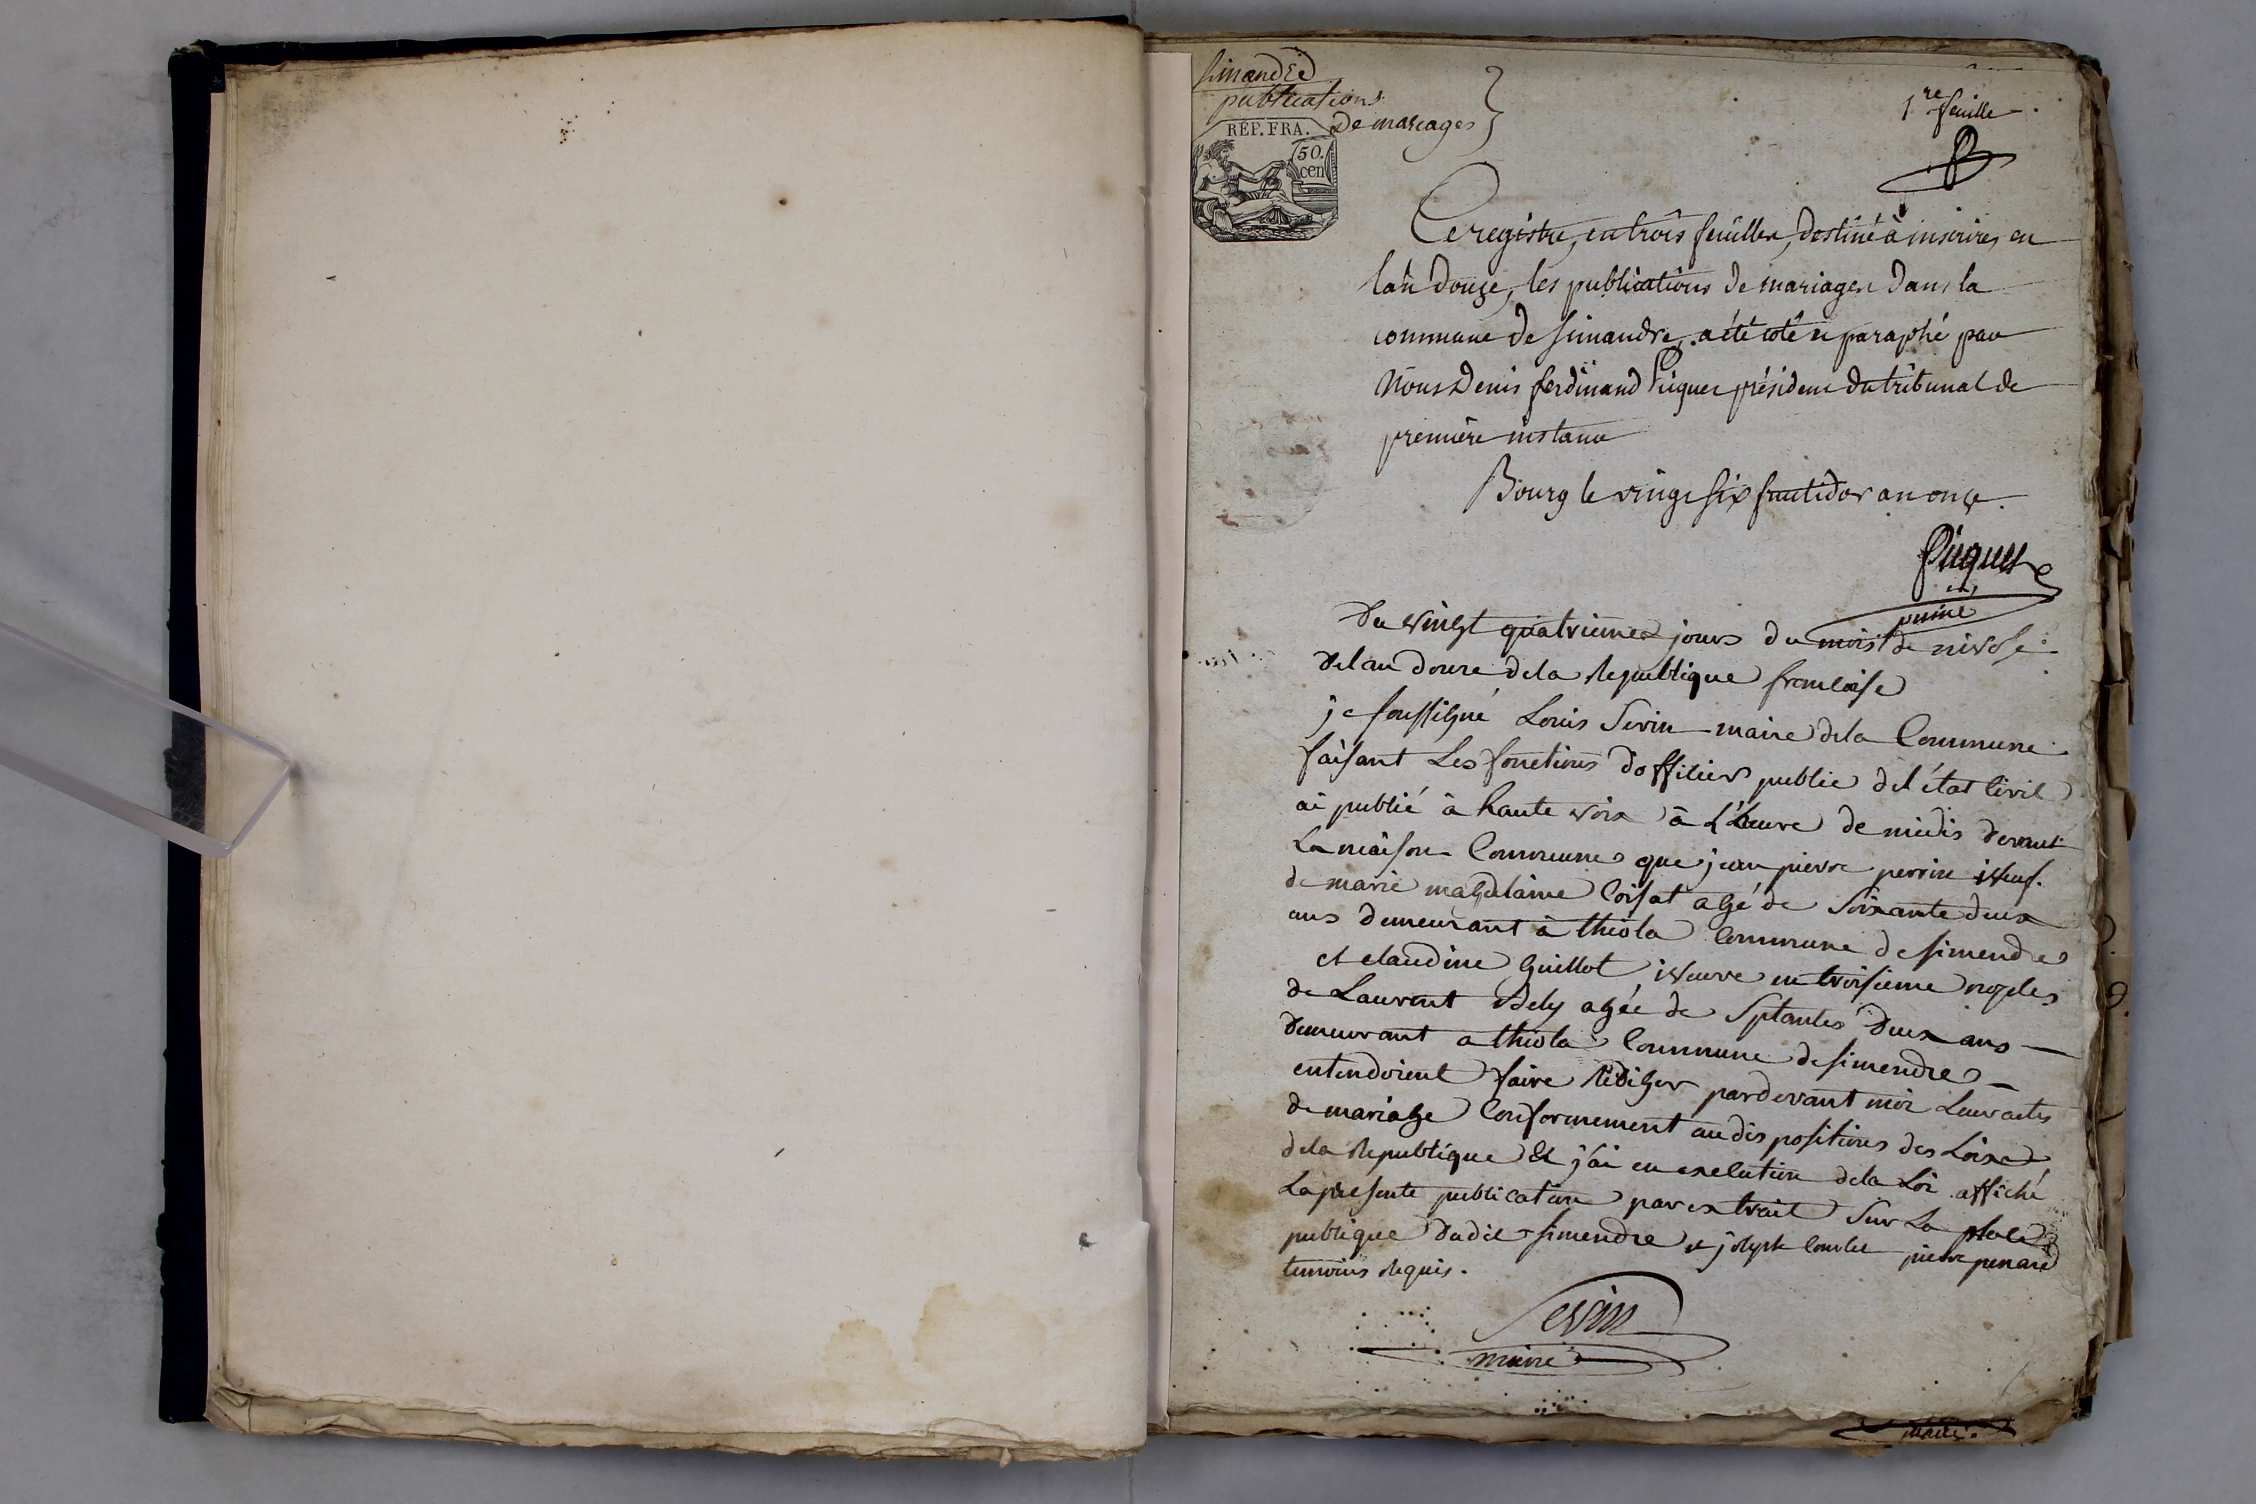 Simandre
publications
de mariages
REP. FRA.
50.
cen
1re feuille
Ce registre, en trois feuilles, destiné à inscrire, en
l'an douze, les publications de mariages dans la
commune de Simandre, a été coté et paraphé par
Nous Denis ferdinand Piquet président du tribunal de
première instance
Bourg le vingt six fructidor an onze.
Piquet
Du vingt quatrieme jours du mois de nivose
de lan douze dela Republique francoise
je soussigné Louis Sevin maire dela Commune
faisant Les fonctions d'officier public de l'état Civil
ai publié à haute voix à L'heure de midis devant
La maison Commune que jean pierre perrin veuf
de marie magdelaine Coisat agé de Soixante deux
ans demeurant à thiola Commune de simendre
et claudine Guillot veuve en troisieme nopces
de Laurent Dely agée de Septantes Deux ans
demeurant a thiola Commune de simendre
entendoient faire Rédiger pardevant moi Leur actes
de mariage Conformement au dispositions des Loix
dela Republique Et j'ai en execution dela Loi affiché
La presente publication par extrait Sur La place
publique dudit simendre et joseph Combet pierre penard
temoins Requis.
Sevin
maire
maire.